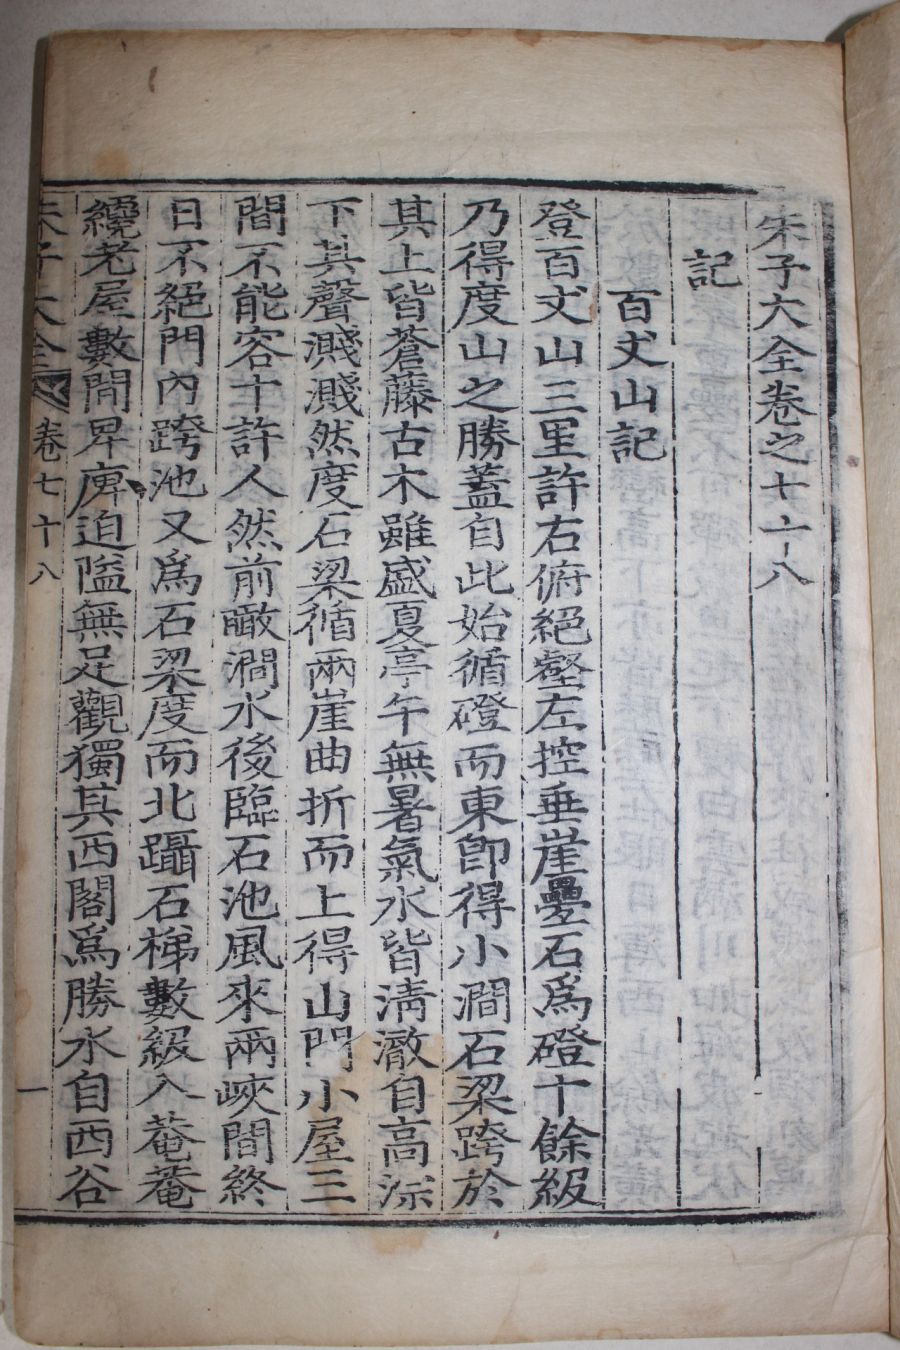 朱子大全卷之七十八
記
百丈山記
登百丈山三里許右俯絕壑左控垂崖疊石爲磴十餘級
乃得度山之勝蓋自此始循磴而東卽得小澗石梁跨於
其上皆蒼藤古木雖盛夏亭午無暑氣水皆淸澈自高淙
下其聲濺濺然度石梁循兩崖曲折而上得山門小屋三
間不能容十許人然前瞰澗水後臨石池風來兩峽間終
日不絕門內跨池又爲石梁度而北躡石梯數級入菴菴
纔老屋數間卑庳迫隘無足觀獨其西閣爲勝水自西谷
朱子大全 卷七十八 一